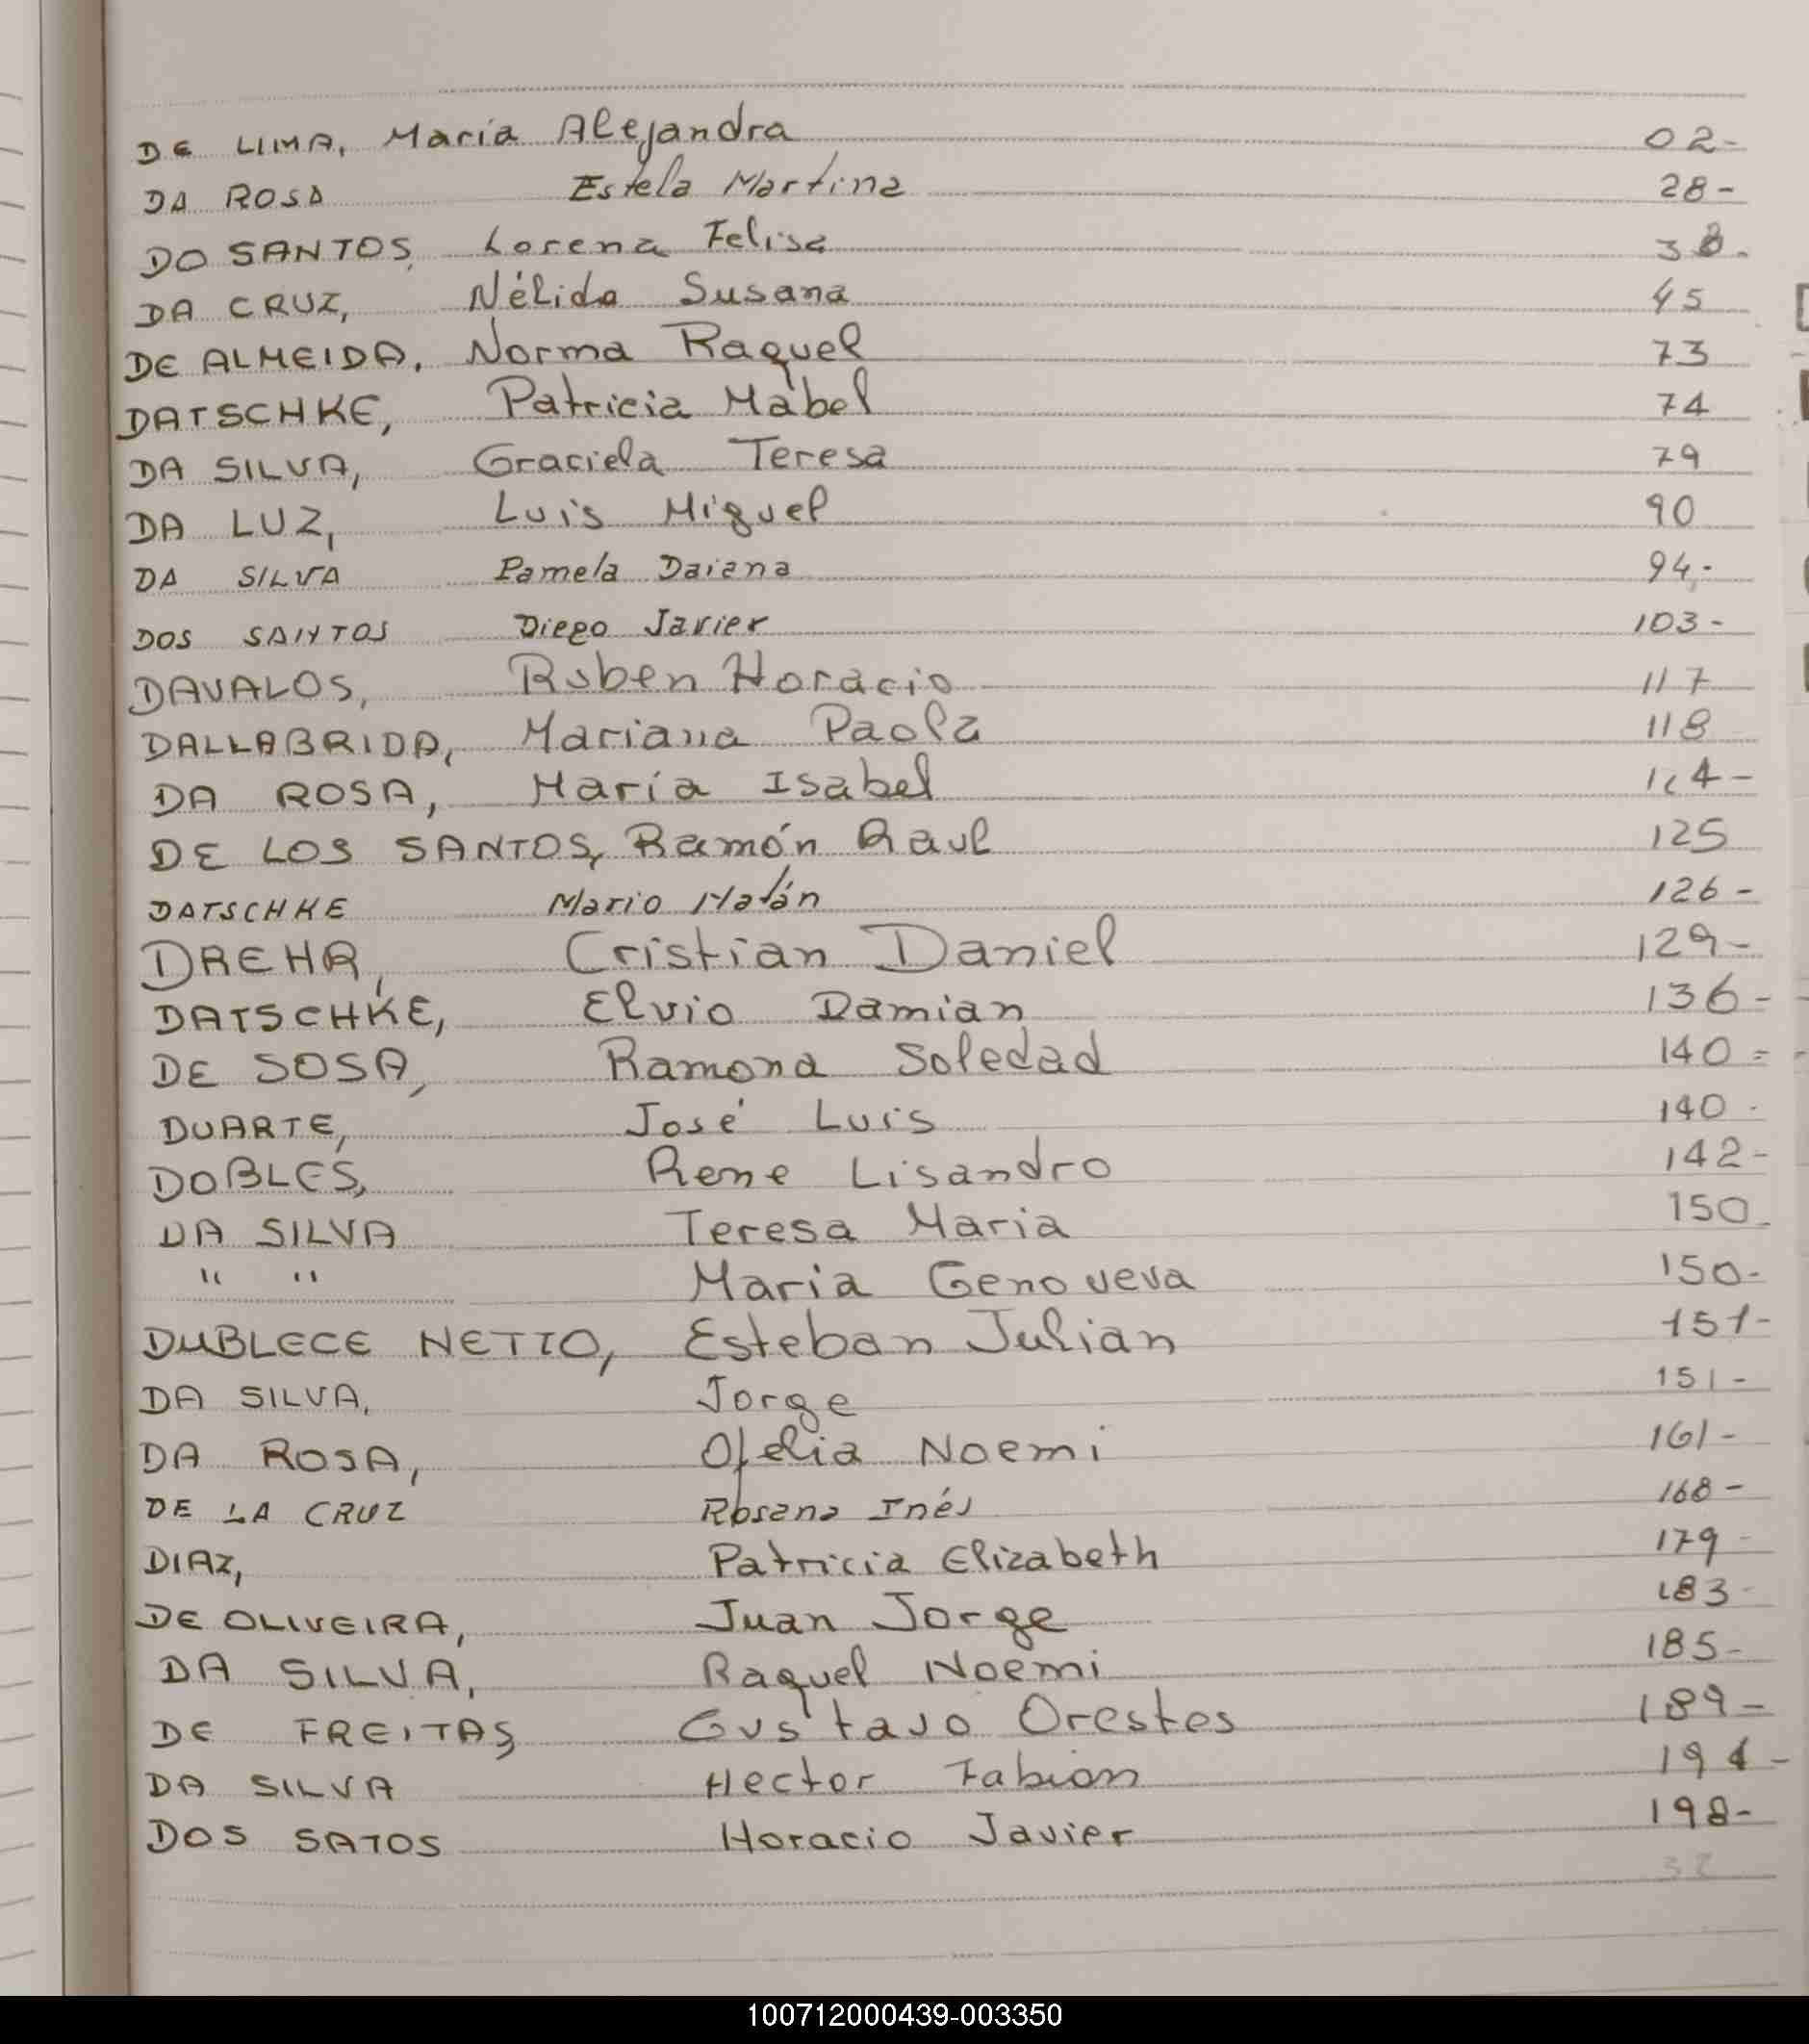 DE LIMA, María Alejandra 02-
DA ROSA Estela Martina 28-
DO SANTOS, Lorena Felisa 38.
DA CRUZ, Nélida Susana 45
DE ALMEIDA, Norma Raquel 73
DATSCHKE, Patricia Mabel 74
DA SILVA, Graciela Teresa 79
DA LUZ, Luis Miguel 90
DA SILVA Pamela Daiana 94,-
DOS SANTOS Diego Javier 103-
DAVALOS, Ruben Horacio 117
DALLABRIDA, Mariana Paola 118
DA ROSA, María Isabel 124-
DE LOS SANTOS, Ramón Raul 125
DATSCHKE Mario 126-
DREHR, Cristian Daniel 129-
DATSCHKE, Elvio Damian 136-
DE SOSA, Ramona Soledad 140=
DUARTE, José Luis 140-
DOBLES, Rene Lisandro 142-
DA SILVA Teresa Maria 150-
" " Maria Genoveva 150-
DUBLECE NETTO, Esteban Julian 151-
DA SILVA, Jorge 151-
DA ROSA, Ofelia Noemi 161-
DE LA CRUZ Rosana Inés 168-
DIAZ, Patricia Elizabeth 179-
DE OLIVEIRA, Juan Jorge 183-
DA SILVA, Raquel Noemi 185-
DE FREITAS, Gustavo Orestes 189-
DA SILVA Hector Fabian
DOS SATOS Horacio Javier 198-
32
100712000439-003350